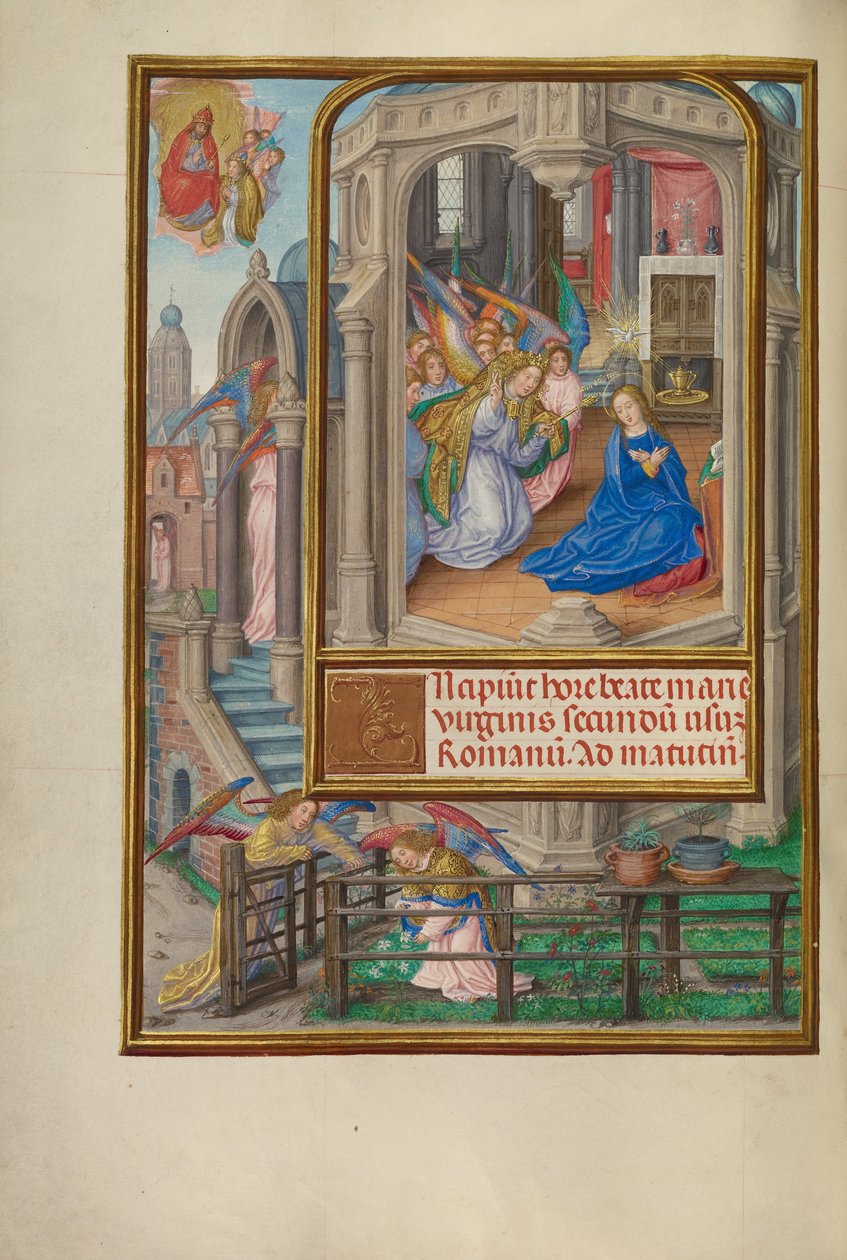 INcipiūt hore beate marie
virginis secundū usuȝ
Romanū. Ad matutin̄.